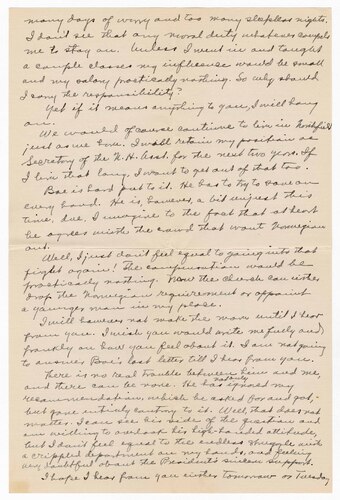 many days of worry and too many sleepless nights.
I don't see that any moral duty whatsoever compels
me to stay on. Unless I went in and taught
a couple classes my influence would be small
and my salary practically nothing. So why should
I carry the responsibility?
Yet if it means anything to you, I will hang
on.
We would of course continue to live in Northfield
just as we have. I shall retain my position as
Secretary of the N.H. Asst. for the next two years. If
I live that long, I want to get out of that too.
Boe is hard put to it. He has to try to save on
every hand. He is, however, a bit unjust this
time, due, I imagine to the fact that at heart
he agrees with the crowd that want Norwegian
out.
Well, I just don't feel equal to going into that
fight again! The compensation would be
practically nothing. Now the church can either
drop the Norwegian requirement or appoint
a younger man in my place.
I will however not make the move until I hear
from you. I wish you would write me fully and
frankly on how you feel about it. I am not going
to answer Boe's last letter till I hear from you.
There is no real trouble between him and me,
and there can be none. He has not only ignored my
recommendation, which he asked for and got,
but gone entirely contrary to it. Well, that does not
matter. I can see his side of the question and
am willing to overlook his high-handed attitude,
but I don't feel equal to the endless struggle with
a crippled department on my hands, and feeling
very doubtful about the President's sincere support.
I hope I hear from you either tomorrow or Tuesday